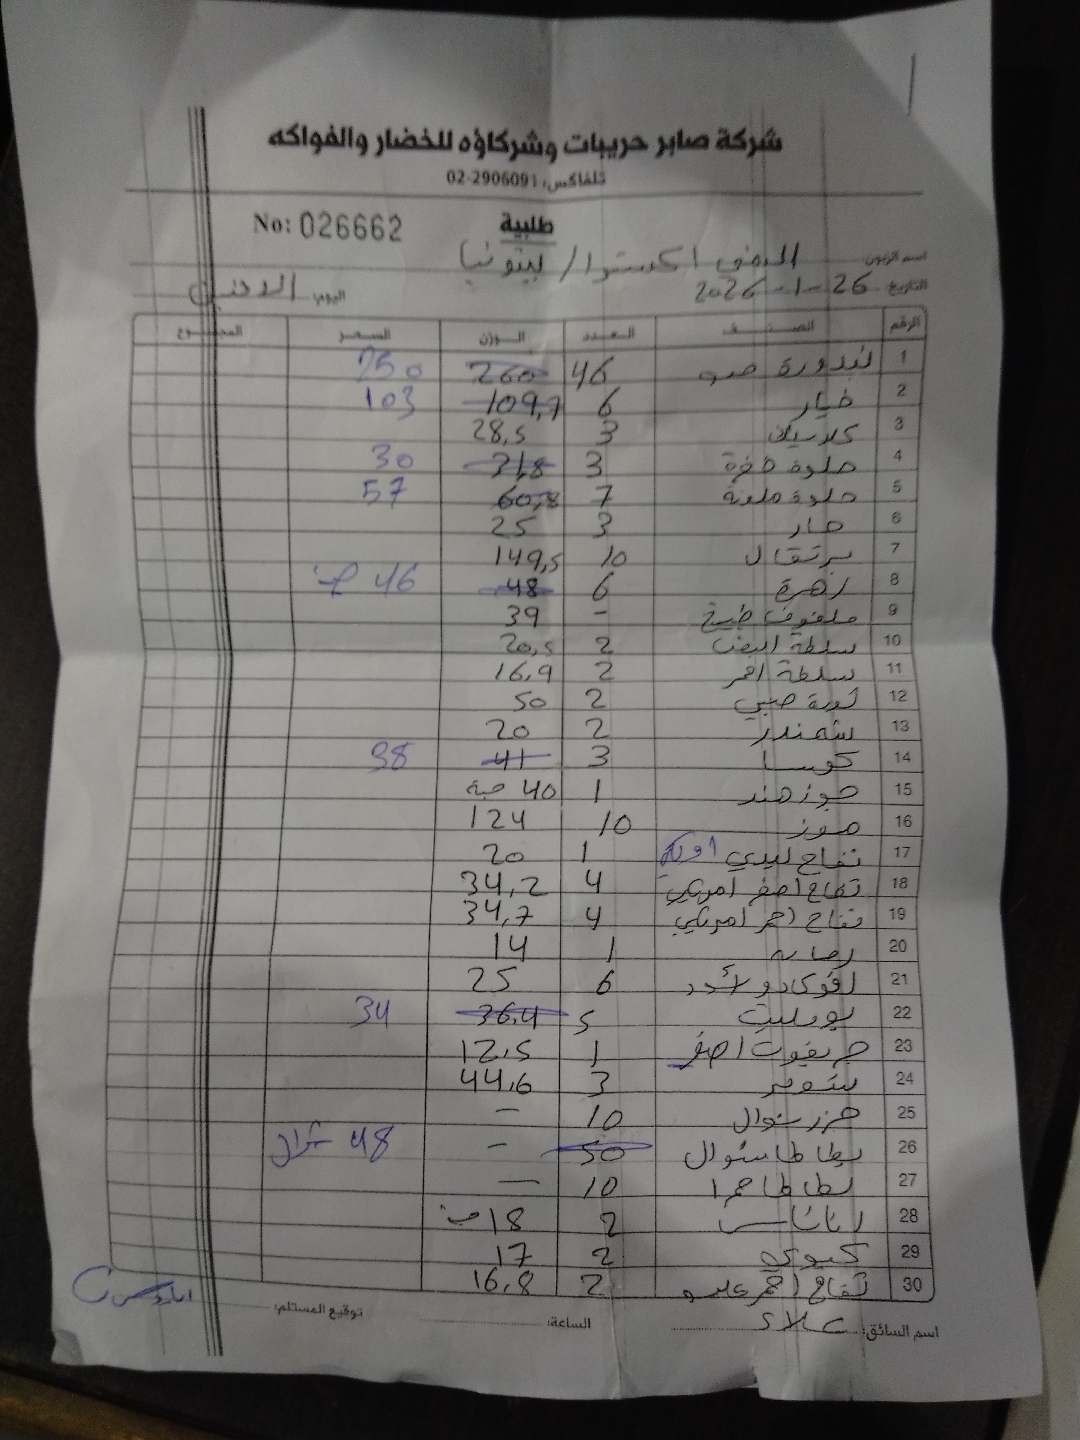 شركة صابر حريبات وشركاؤه للخضار والفواكه
تلفاكس: 02-2906091
طلبية
No: 026662
اسم الزبون: اكسترا / بيتونيا
التاريخ: 26-1-2026 اليوم: الاثنين
الرقم الصنف العدد الوزن السعر المجموع
1 بندورة 46 260 250
2 خيار 6 109,7 103
3 3 28,5
4 حلوة صفرة 3 31,8 30
5 حلوة ملونة 7 60,8 57
6 حار 3 25
7 برتقال 10 149,5
8 زهرة 6 48 46
9 ملفوف طبيخ - 39
10 سلطة ابيض 2 20,5
11 سلطة احمر 2 16,9
12 صيني 2 50
13 شمندر 2 20
14 كوسا 3 41 38
15 جوز هند 1 40 حبة
16 موز 10 124
17 تفاح ليدي 1 20
18 تفاح اصفر امريكي 4 34,2
19 تفاح احمر امريكي 4 34,7
20 1 14
21 افوكادو 6 25
22 5 36,4 34
23 جريفوت اصفر 1 12,5
24 بوملي 3 44,6
25 جزر شوال 10 -
26 بطاطا شوال 50 - 48 شوال
27 بطاطا حمرا 10 -
28 اناناس 2 18
29 كيوي 2 17
30 تفاح احمر 2 16,8
اسم السائق: علاء الساعة: توقيع المستلم: